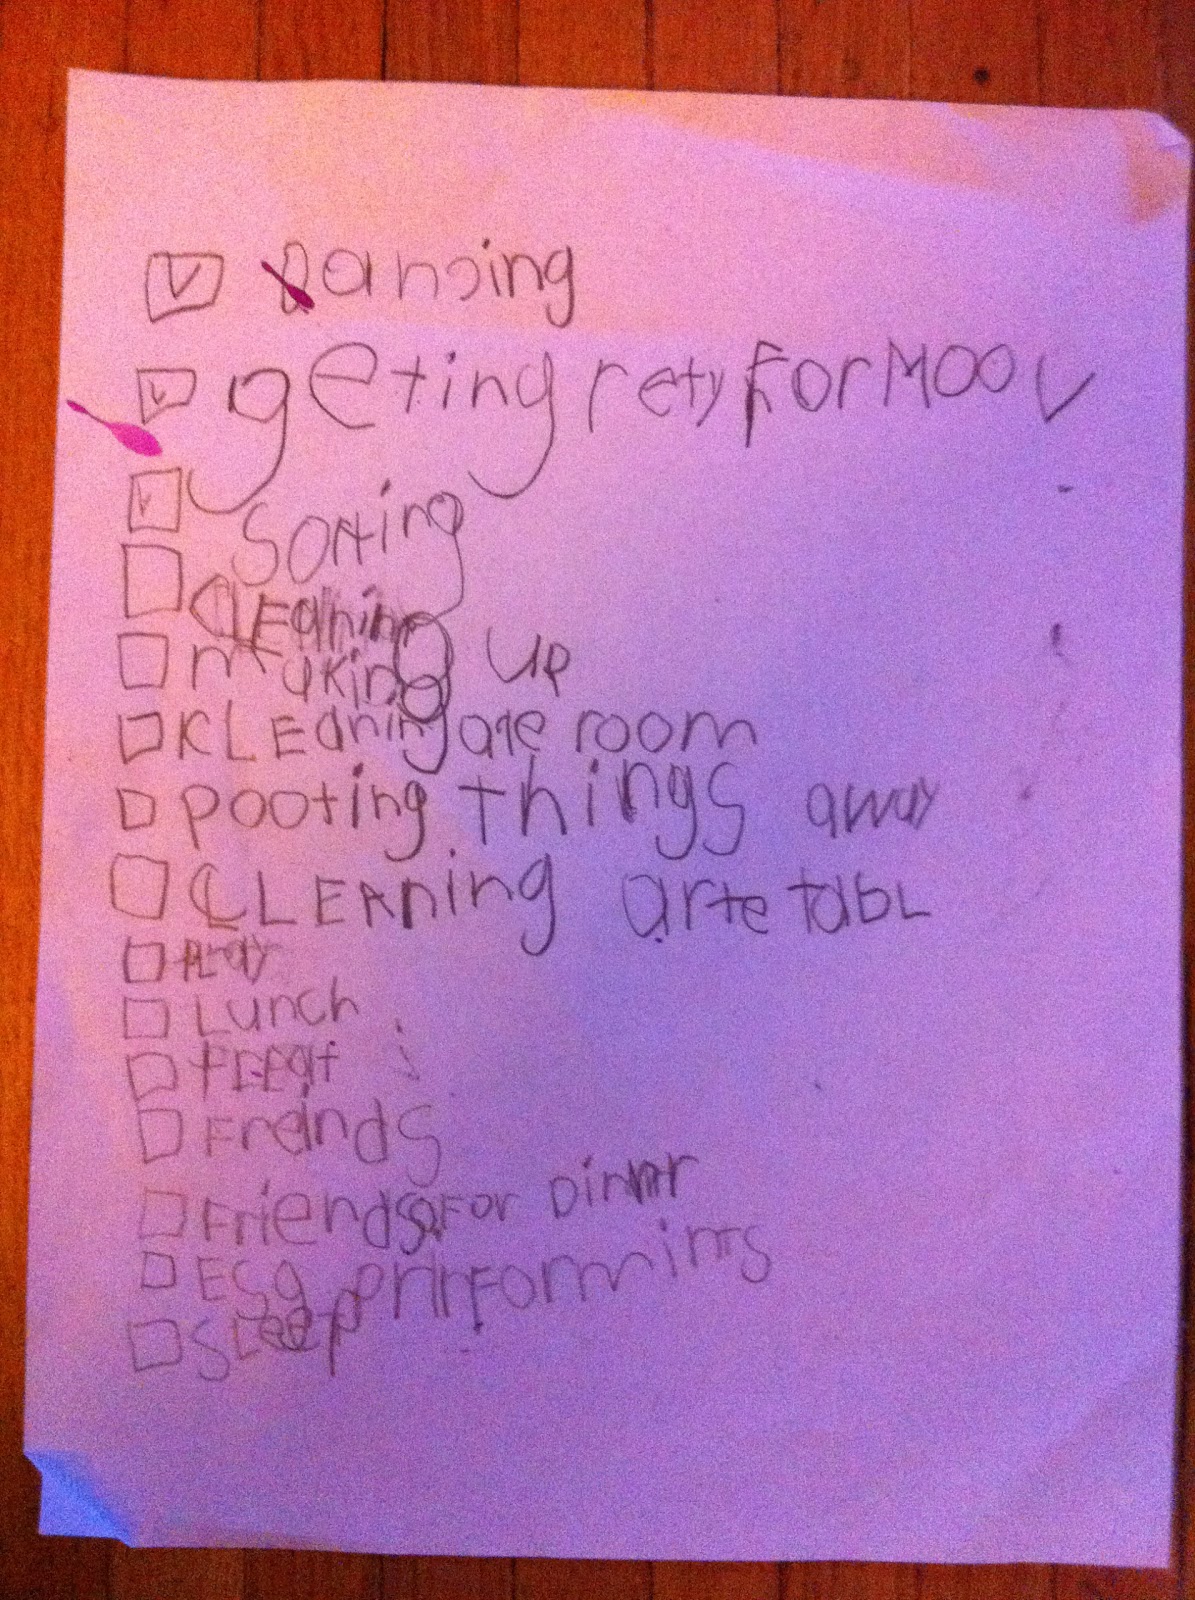 Dansing
geting rety For MOOV
Sorting
CLEaning UP
making
KLEaning are room
pooting things away
CLEARning arte tabL
PLay
Lunch
trEat
Freinds
Friends For Dinnr
prirForminrs
SLeep